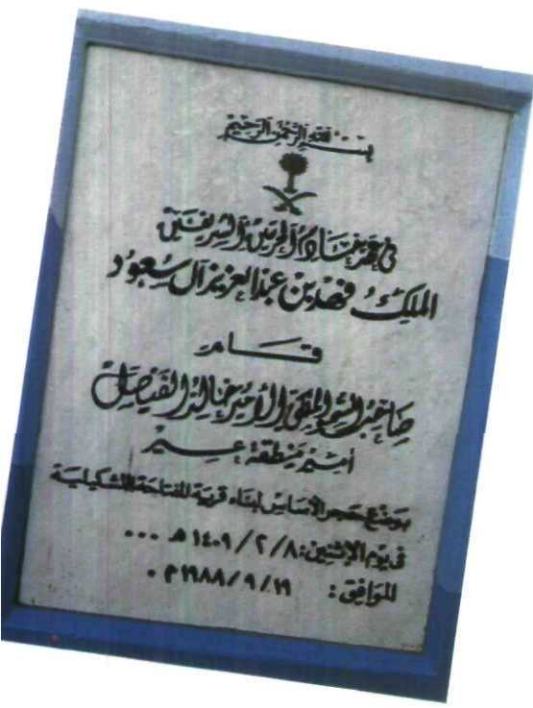 بسم الله الرحمن الرحيم
في عهد خادم الحرمين الشريفين
الملك فهد بن عبدالعزيز آل سعود
قام
صاحب السمو الملكي الأمير خالد الفيصل
أمير منطقة عسير
بوضع حجر الأساس لبناء قرية المفتاحة التشكيلية
في يوم الإثنين: ١٤٠٩/٢/٨ هـ ...
الموافق: ١٩٨٨/٩/١٩ م .